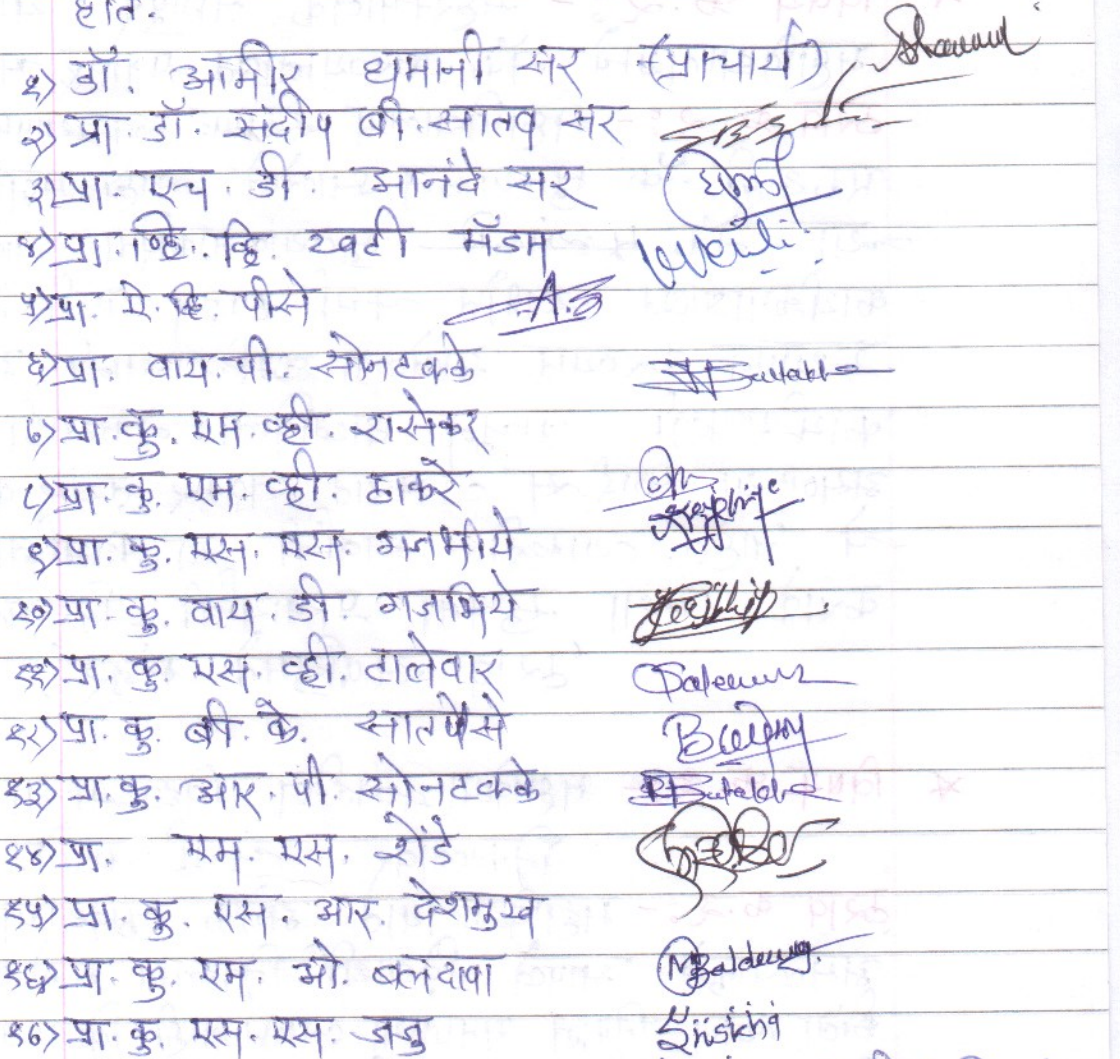 होते.
१) डॉ. आमीर धमानी सर - (प्राचार्य)
२) प्रा. डॉ. संदीप बी. सातव सर
३) प्रा. एच. डी. आनंदे सर
४) प्रा. व्हि. व्हि. रवटी मॅडम
५) प्रा. ऐ. व्हि. पीसे
६) प्रा. वाय. पी. सोनटक्के
७) प्रा. कु. एम. व्ही. रासेकर
८) प्रा. कु. एम. व्ही. ठाकरे
९) प्रा. कु. एस. एस. गजभीये
१०) प्रा. कु. वाय. डी. गजभिये
११) प्रा. कु. एस. व्ही. टालेवार
१२) प्रा. कु. बी. के. सातपैसे
१३) प्रा. कु. आर. पी. सोनटक्के
१४) प्रा. एम. एस. शेंडे
१५) प्रा. कु. एस. आर. देशमुख
१६) प्रा. कु. एम. ओ. बलदवा
१७) प्रा. कु. एस. एस. जजु